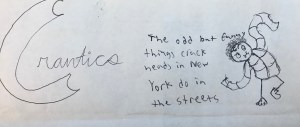 Crantics
The odd but funny
things crack
heads in New
York do in
the streets